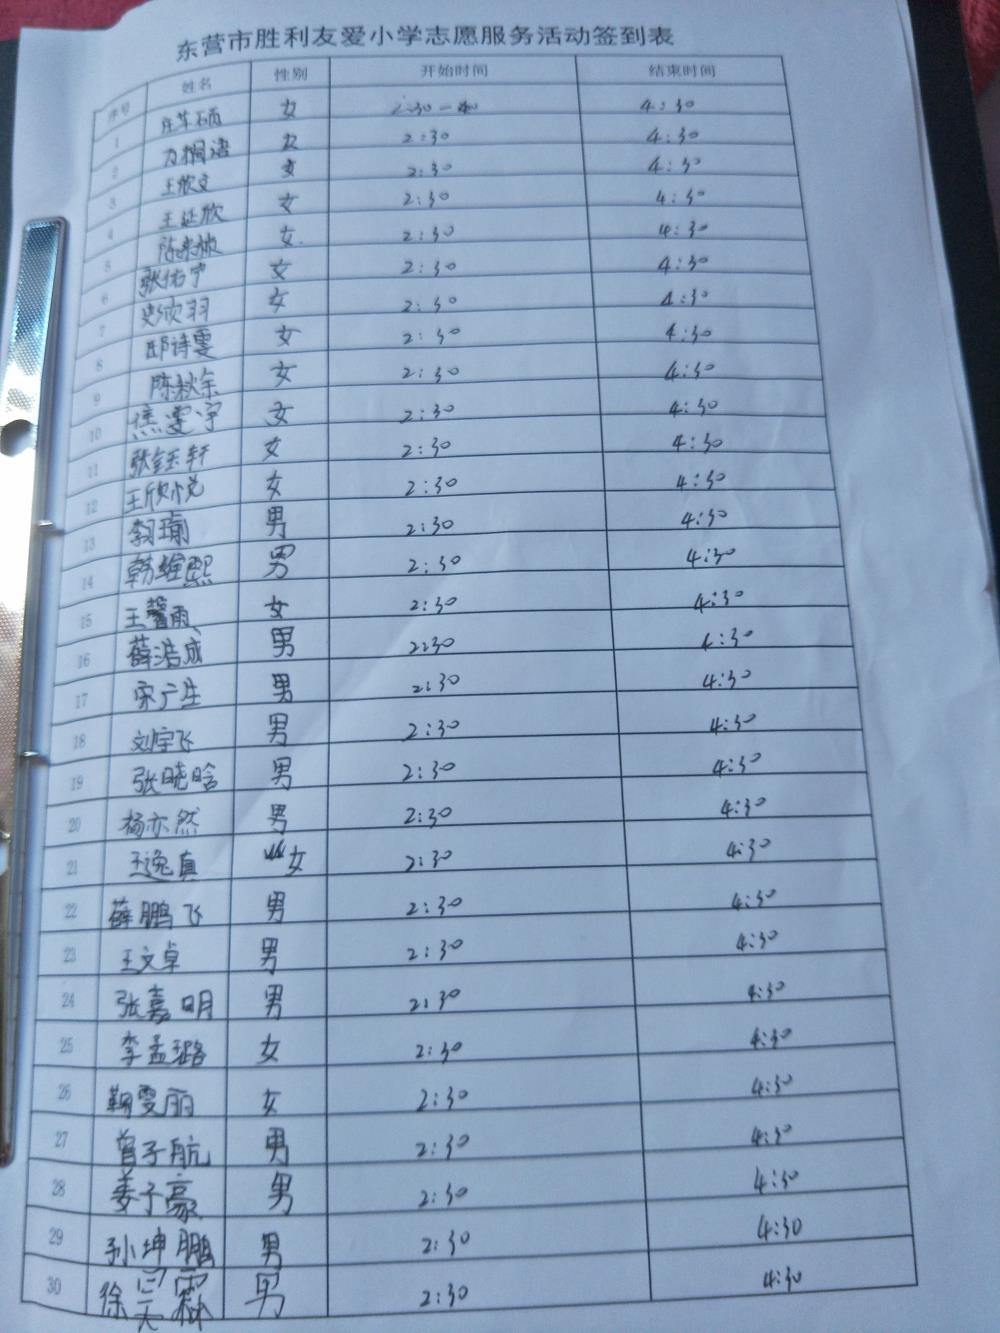 东营市胜利友爱小学志愿服务活动签到表
序号 姓名 性别 开始时间 结束时间
1 女 2:30 4:30
2 女 2:30 4:30
3 王欣文 女 2:30 4:30
4 王延欣 女 2:30 4:30
5 女 2:30 4:30
6 张佑宁 女 2:30 4:30
7 女 2:30 4:30
8 邱诗雯 女 2:30 4:30
9 陈秋余 女 2:30 4:30
10 焦雯宇 女 2:30 4:30
11 张钰轩 女 2:30 4:30
12 王欣悦 女 2:30 4:30
13 男 2:30 4:30
14 韩维熙 男 2:30 4:30
15 王馨雨 女 2:30 4:30
16 薛浩成 男 2:30 4:30
17 宋广生 男 2:30 4:30
18 刘宇飞 男 2:30 4:30
19 张晓晗 男 2:30 4:30
20 杨亦然 男 2:30 4:30
21 王逸真 女 2:30 4:30
22 薛鹏飞 男 2:30 4:30
23 王文卓 男 2:30 4:30
24 张嘉明 男 2:30 4:30
25 李孟璐 女 2:30 4:30
26 鞠雯丽 女 2:30 4:30
27 曾子航 男 2:30 4:30
28 姜子豪 男 2:30 4:30
29 孙坤鹏 男 2:30 4:30
30 徐昊霖 男 2:30 4:30